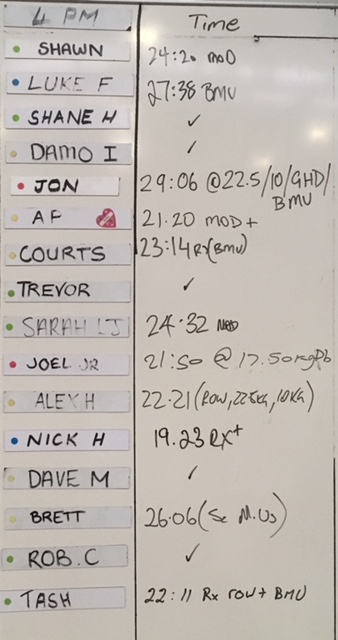 4 PM Time
SHAWN 24:20 MOD
LUKE F 27:38 BMU
SHANE H ✓
DAMO I ✓
JON 29:06 @22.5/10/GHD/
BMU
AF 21.20 MOD+
COURTS 23:14 RX(BMU)
TREVOR ✓
SARAH LJ 24:32
JOEL JR 21:50 @ 17.50kg
ALEX H 22.21 (ROW, 22.5KG, 10KG)
NICK H 19.23 RX+
DAVE M ✓
BRETT 26:06 (Sc M.Us)
ROB.C ✓
TASH 22:11 Rx row + BMU